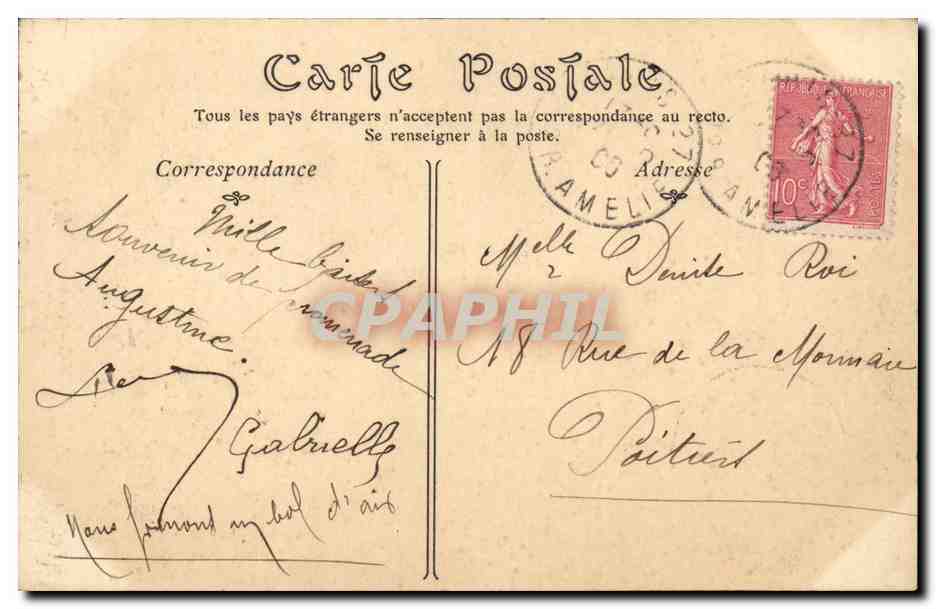 Carte Postale
Tous les pays étrangers n'acceptent pas la correspondance au recto.
Se renseigner à la poste.
Correspondance
Mille
Souvenir de promenade
Augustine
Gabrielle
Nous un bol d'air
Adresse
Melle Denise Roi
18 Rue de la Monnaie
Poitiers
RÉPUBLIQUE FRANÇAISE
10c
POSTES
R. AMELIE
27
CPAPHIL